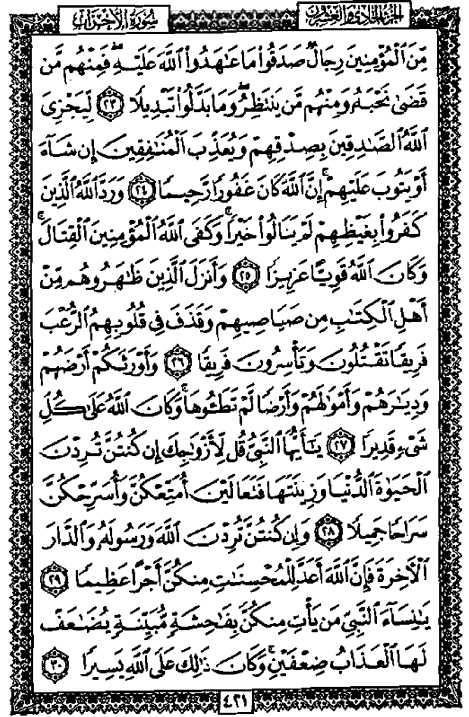 الجزء الحادي والعشرين
سورة الأحزاب
مِّنَ ٱلْمُؤْمِنِينَ رِجَالٌ صَدَقُوا۟ مَا عَٰهَدُوا۟ ٱللَّهَ عَلَيْهِ ۖ فَمِنْهُم مَّن
قَضَىٰ نَحْبَهُۥ وَمِنْهُم مَّن يَنتَظِرُ ۖ وَمَا بَدَّلُوا۟ تَبْدِيلًا ٢٣ لِّيَجْزِىَ
ٱللَّهُ ٱلصَّٰدِقِينَ بِصِدْقِهِمْ وَيُعَذِّبَ ٱلْمُنَٰفِقِينَ إِن شَآءَ
أَوْ يَتُوبَ عَلَيْهِمْ ۚ إِنَّ ٱللَّهَ كَانَ غَفُورًا رَّحِيمًا ٢٤ وَرَدَّ ٱللَّهُ ٱلَّذِينَ
كَفَرُوا۟ بِغَيْظِهِمْ لَمْ يَنَالُوا۟ خَيْرًا ۚ وَكَفَى ٱللَّهُ ٱلْمُؤْمِنِينَ ٱلْقِتَالَ ۚ
وَكَانَ ٱللَّهُ قَوِيًّا عَزِيزًا ٢٥ وَأَنزَلَ ٱلَّذِينَ ظَٰهَرُوهُم مِّنْ
أَهْلِ ٱلْكِتَٰبِ مِن صَيَاصِيهِمْ وَقَذَفَ فِى قُلُوبِهِمُ ٱلرُّعْبَ
فَرِيقًا تَقْتُلُونَ وَتَأْسِرُونَ فَرِيقًا ٢٦ وَأَوْرَثَكُمْ أَرْضَهُمْ
وَدِيَٰرَهُمْ وَأَمْوَٰلَهُمْ وَأَرْضًا لَّمْ تَطَـُٔوهَا ۚ وَكَانَ ٱللَّهُ عَلَىٰ كُلِّ
شَىْءٍ قَدِيرًا ٢٧ يَٰٓأَيُّهَا ٱلنَّبِىُّ قُل لِّأَزْوَٰجِكَ إِن كُنتُنَّ تُرِدْنَ
ٱلْحَيَوٰةَ ٱلدُّنْيَا وَزِينَتَهَا فَتَعَالَيْنَ أُمَتِّعْكُنَّ وَأُسَرِّحْكُنَّ
سَرَاحًا جَمِيلًا ٢٨ وَإِن كُنتُنَّ تُرِدْنَ ٱللَّهَ وَرَسُولَهُۥ وَٱلدَّارَ
ٱلْءَاخِرَةَ فَإِنَّ ٱللَّهَ أَعَدَّ لِلْمُحْسِنَٰتِ مِنكُنَّ أَجْرًا عَظِيمًا ٢٩
يَٰنِسَآءَ ٱلنَّبِىِّ مَن يَأْتِ مِنكُنَّ بِفَٰحِشَةٍ مُّبَيِّنَةٍ يُضَٰعَفْ
لَهَا ٱلْعَذَابُ ضِعْفَيْنِ ۚ وَكَانَ ذَٰلِكَ عَلَى ٱللَّهِ يَسِيرًا ٣٠
٤٢١